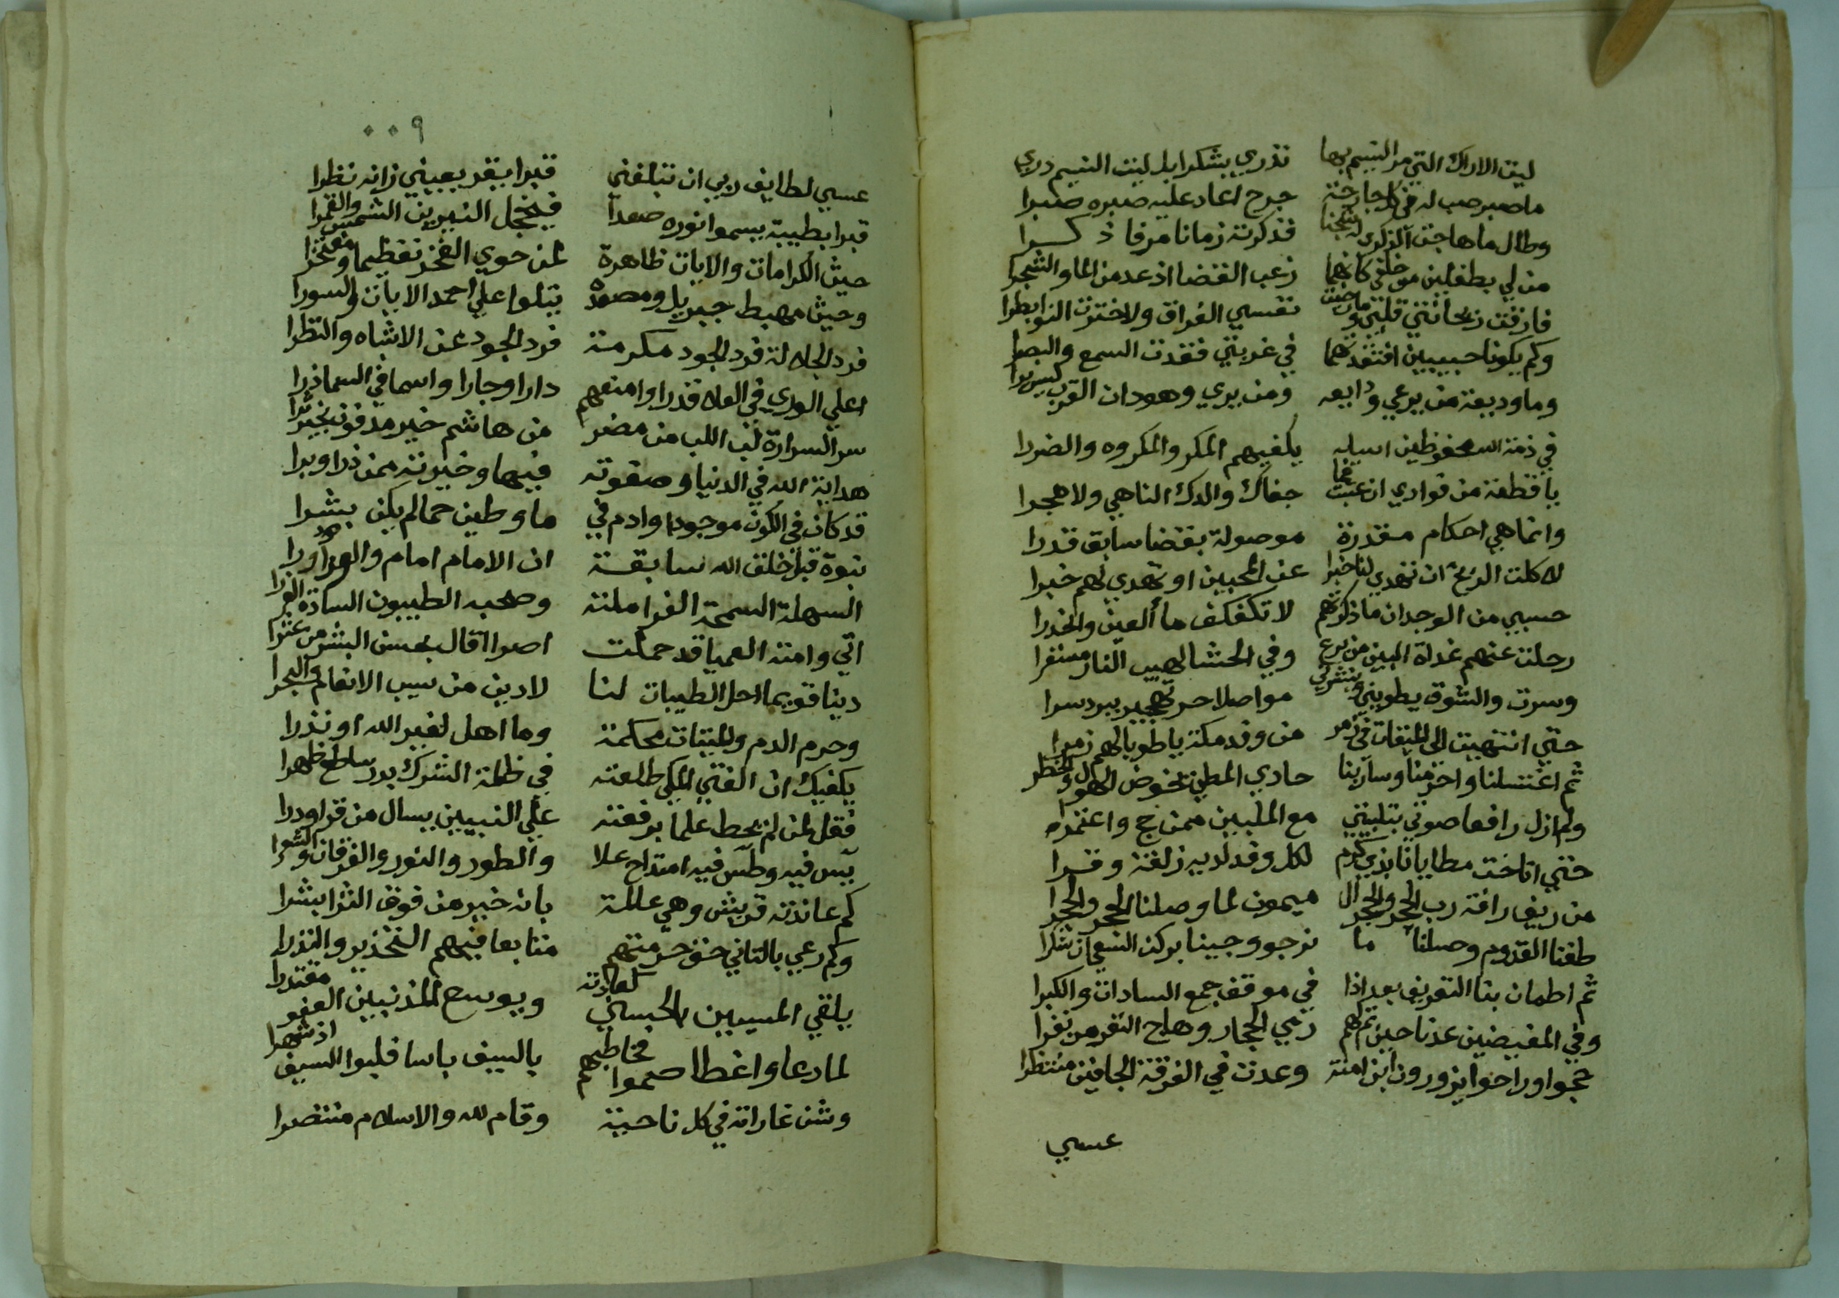 ليت الاراك التي مر النسيم بها تدري بشكرا بل ليت النسيم دري
ما صبر صب له في كل جارحة جرح اعاد عليه صبره صبرا
وطال ما هاجت الذكري له شجنا فذكرته زمانا مر فاذكرا
من لي بطفلين من خلفي كانهما زغب القضا اذ عد من الما والشجرا
فارقت ريحانتي قلبي وما حييت نفسي الفراق ولاختزت النوا بطرا
وكم يكونا حبيبين افتقدتهما في غربتي فقدت السمع والبصرا
وما وديعة من يرعي ودايعه ومن يري وهودان القرب ليس يرا
في ذمة الله محفوظين اسيله يكفيهم المكر والمكروه والضررا
يا قطعة من فوادي ان غبت فما جفاك والدك الناهي ولا هجرا
وانما هي احكام مقدرة موصولة بقضا سابق قدرا
لا كلت الريح ان تهدي لنا خبرا عن المحبين او تهدي لهم خبرا
حسبي من الوجدان ما ذكرتهم لا تكفكف ما العين والخدرا
رحلت عنهم غداة البين من برع وفي الحشا لهيب النار مستعرا
وسرت والشوق يطويني وينشرني مواصلا حر تهجير ببرد سرا
حتي انتهيت الي الميقات في زمر من وفد مكة يا طوبا لهم زمرا
ثم اغتسلنا واحرمنا وسار بنا حادي المطي نخوض الهول والخطر
ولم ازل رافعا صوتي بتلبيتي مع الملبين ممن حج واعتمرا
حتي اناخت مطايانا بذي كرم لكل وفد لديه زلفة وقرا
من ريف رافة رب الحجر والحجر ال ميمون لما وصلنا الحجر والحجرا
طفنا القدوم وصلنا ما نرجو وجينا بركن السعي ان شكرا
ثم اطمان بنا التعريف بعد اذا في موقف جمع السادات والكبرا
وفي المفيضين عدنا حين تم لهم رمي الجمار وهاج النفر من نفرا
حجوا وراحوا يزورون ابن امنة وعدت في الفرقة الجافين منتظرا
عسي
٠٠٩
عسي لطايف ربي ان تبلغني قبرا يقر بعيني زانه نظرا
قبرا بطيبة يسموا نوره صعدا فيخجل النيرين الشمس والقمرا
حيث الكرامات والايات ظاهرة لمن حوي الفخر تعظيما ومفتخرا
وحيث مهبط جبريل ومصعده يتلوا علي احمد الايات والسورا
فرد الجلالة فرد الجود مكرمة فرد الجود عن الاشباه والنظرا
اعلي الوري في العلا قدرا وامنعهم دارا وجارا واسما في السما ذرا
سر السرارة لب اللب من مضر من هاشم خير مدفون بخير ثرا
هداية الله في الدنيا وصفوته فيها وخيرته ممن ذرا وبرا
قد كان في الكون موجودا وادم في ما وطين حما لم يكن بشرا
نبوة قبل خلق الله سابقة ان الامام امام والورا ورا
السهلة السمحة الغرا ملته وصحبه الطيبون السادة الغررا
اتي وامته العميا قد حملت اصرا اقال بحسن البشر من عثرا
دينا قويما احل الطيبات لنا لا دين من سيب الانعام والبحرا
وحرم الدم والميتات محكمة وما اهل لغير الله او نذرا
يكفيك ان الفتي المكي طلعته في ظلمة الشرك بدر ساطع ظهرا
فقل لمن لم يحط علما برفعته علي النبيين يسال من قرا ودرا
يس فيه وطس فيه امتداح علا والطور والنور والفرقان والشورا
كم عاندته قريش وهي عالمة بانه خير من فوق الثرا بشرا
وكم رعي بالتاني حق حرمتهم متابعا فيهم التحذير والنذرا
يلقي المسيين بالحسني كعادته ويوسع المذنبين العفو مقتدرا
لما دعا واغطا صموا مخاطبهم بالسيف ياسا فلبوا السيف اذ شهرا
وشن غاراته في كل ناحية وقام لله والاسلام منتصرا